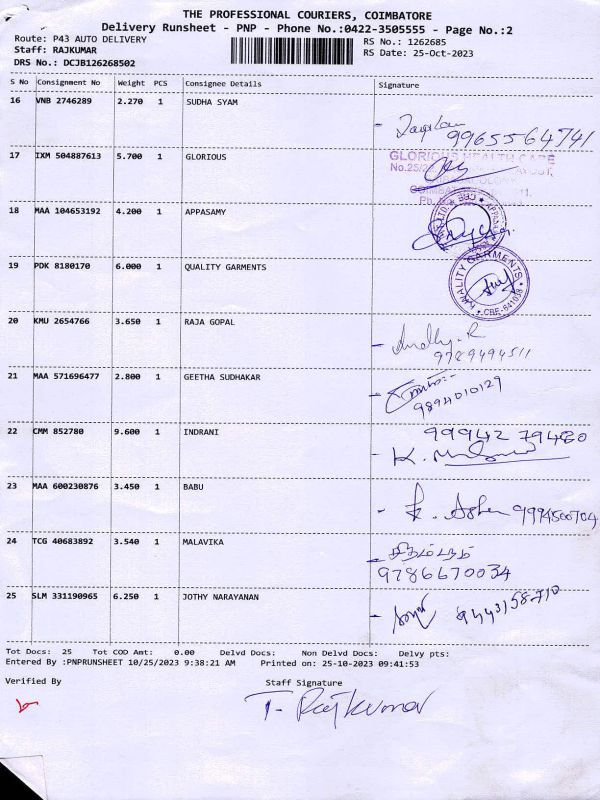 THE PROFESSIONAL COURIERS, COIMBATORE
Delivery Runsheet - PNP - Phone No.:0422-3505555 - Page No.:2
Route: P43 AUTO DELIVERY RS No.: 1262685
Staff: RAJKUMAR RS Date: 25-Oct-2023
DRS No.: DCJB126268502
S No Consignment No Weight PCS Consignee Details Signature
16 VNB 2746289 2.270 1 SUDHA SYAM
9965564741
17 IXM 504887613 5.700 1 GLORIOUS
GLORIOUS HEALTH CARE
No.25/2
18 MAA 104653192 4.200 1 APPASAMY
19 PDK 8180170 6.000 1 QUALITY GARMENTS
QUALITY GARMENTS
CBE-641038
20 KMU 2654766 3.650 1 RAJA GOPAL
9789494511
21 MAA 571696477 2.800 1 GEETHA SUDHAKAR
9894010129
22 CMM 852780 9.600 1 INDRANI
99942 79480
K.
23 MAA 600230876 3.450 1 BABU
9994500704
24 TCG 40683892 3.540 1 MALAVIKA
9786670034
25 SLM 331190965 6.250 1 JOTHY NARAYANAN
9443158710
Tot Docs: 25 Tot COD Amt: 0.00 Delvd Docs: Non Delvd Docs: Delvy pts:
Entered By :PNPRUNSHEET 10/25/2023 9:38:21 AM Printed on: 25-10-2023 09:41:53
Verified By Staff Signature
T. Rajkumar